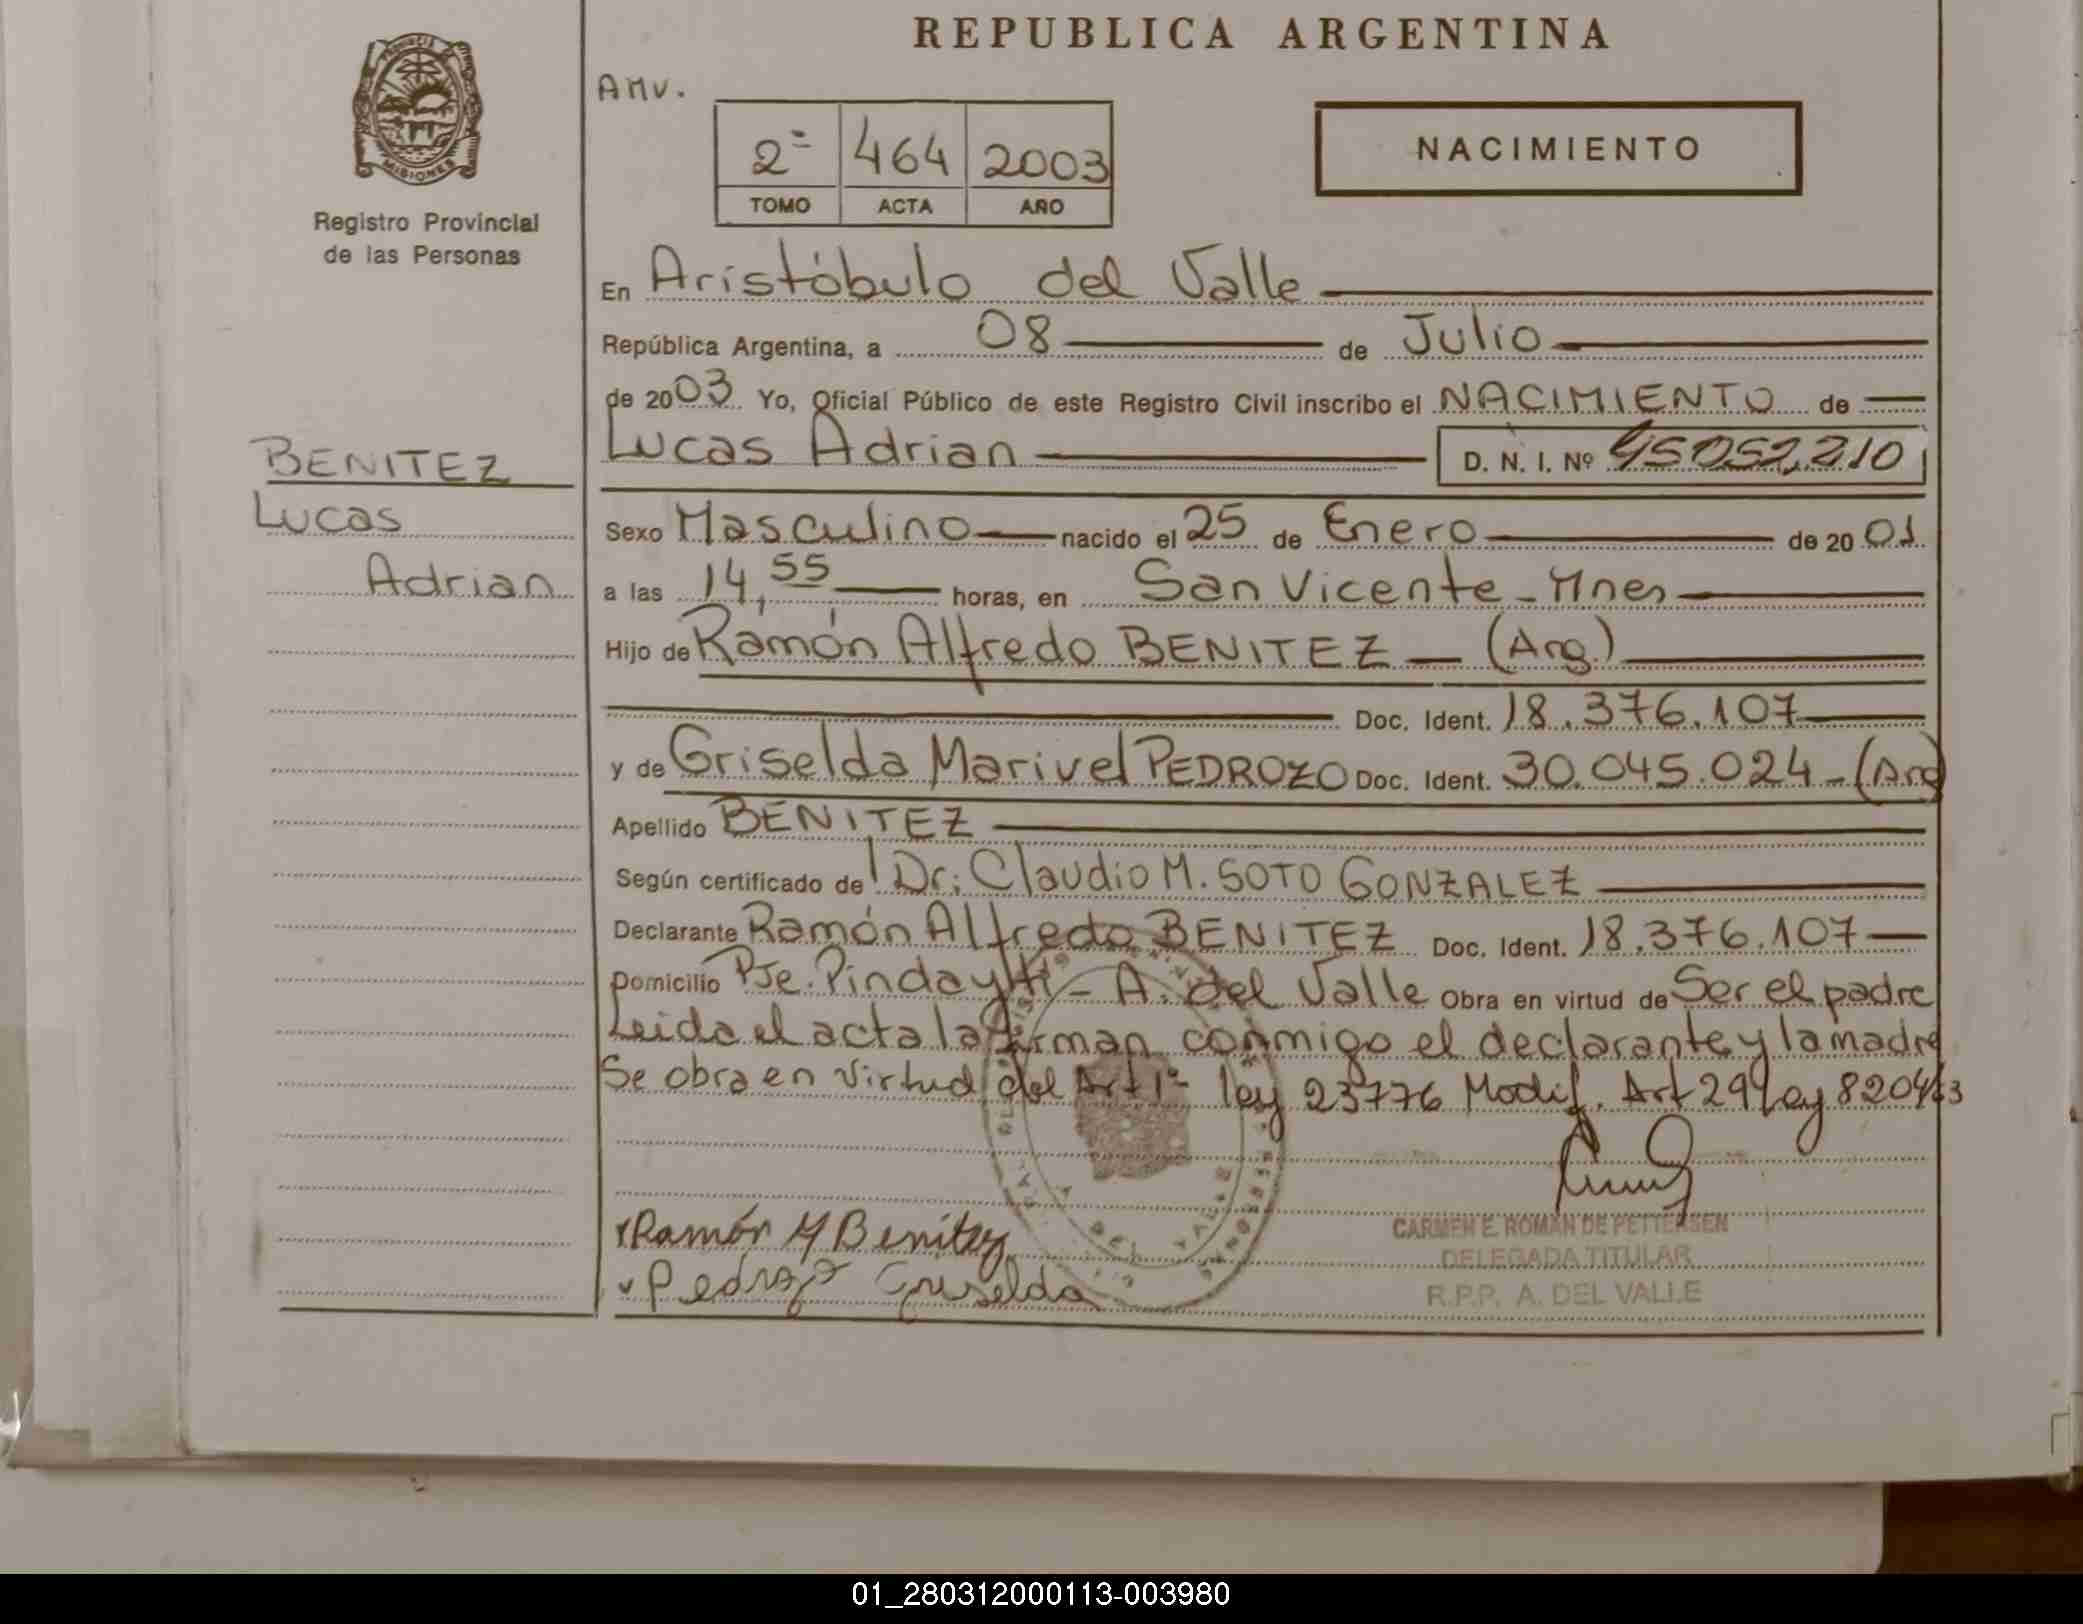 REPUBLICA ARGENTINA
PROVINCIA DE MISIONES
Registro Provincial
de las Personas
AMV.
2º 464 2003
TOMO ACTA AÑO
NACIMIENTO
En Aristóbulo del Valle
República Argentina, a 08 de Julio
de 2003 Yo, Oficial Público de este Registro Civil inscribo el NACIMIENTO de
Lucas Adrian D. N. I. Nº 45052,210
BENITEZ
Lucas
Adrian
Sexo Masculino nacido el 25 de Enero de 2001
a las 14,55 horas, en San Vicente - Mnes
Hijo de Ramón Alfredo BENITEZ — (Arg.)
Doc. Ident. 18.376.107
y de Griselda Marivel PEDROZO Doc. Ident. 30.045.024 - (Arg
Apellido BENITEZ
Según certificado de Dr. Claudio M. SOTO GONZALEZ
Declarante Ramón Alfredo BENITEZ Doc. Ident. 18.376.107
Domicilio Pje. Pindayti - A. del Valle Obra en virtud de Ser el padre
Leida el acta la firman conmigo el declarante y la madre
Se obra en virtud del Art 1º ley 23776 Modif. Art 29 Ley 8204/63
Ramón A Benitez
Pedrozo Griselda
CARMEN E. ROMAN DE PETTERSEN
DELEGADA TITULAR
R.P.P. A. DEL VALLE
01_280312000113-003980